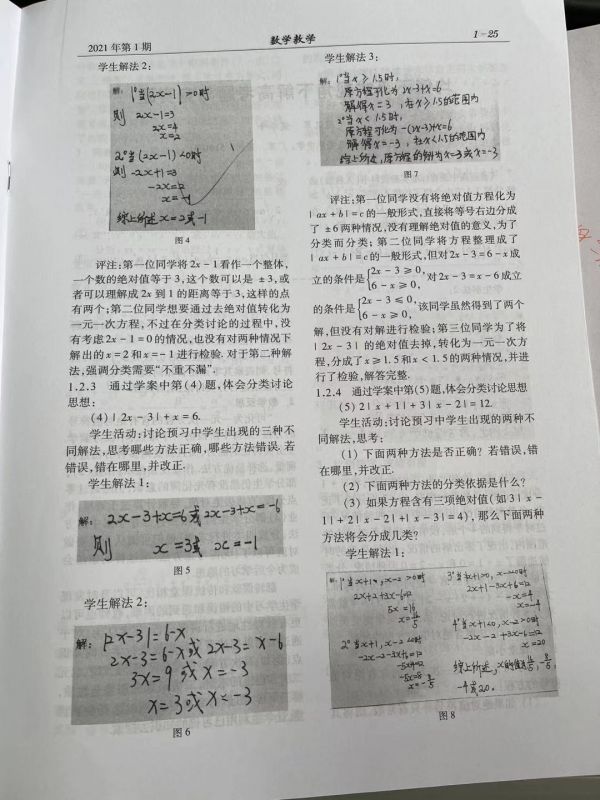 2021 年第 1 期
数学教学
1－25
学生解法 2：
解: 1°当(2x-1)>0时
则 2x-1=3
2x=4
x=2
2°当(2x-1)<0时
则 -2x+1=3
-2x=2
x=-1
综上所述 x=2或-1
图 4
评注：第一位同学将 2x－1 看作一个整体，
一个数的绝对值等于 3，这个数可以是 ±3，或
者可以理解成 2x 到 1 的距离等于 3，这样的点
有两个；第二位同学想要通过去绝对值转化为
一元一次方程，不过在分类讨论的过程中，没
有考虑 2x－1＝0 的情况，也没有对两种情况下
解出的 x＝2 和 x＝－1 进行检验. 对于第二种解
法，强调分类需要“不重不漏”.
1.2.3 通过学案中第(4)题，体会分类讨论
思想：
(4)| 2x－3 |＋x＝6.
学生活动：讨论预习中学生出现的三种不
同解法，思考哪些方法正确，哪些方法错误. 若
错误，错在哪里，并改正.
学生解法 1：
解: 2x-3+x=6或2x-3+x=-6
则 x=3或 x=-1
图 5
学生解法 2：
解: |2x-3|=6-x
2x-3=6-x或2x-3=x-6
3x=9 或x=-3
x=3或x=-3
图 6
学生解法 3：
解: 1°当x≥1.5时,
原方程可化为 2x-3+x=6
解得x=3, 在x≥1.5的范围内
2°当x<1.5时,
原方程化为 -(2x-3)+x=6
解得x=-3, 在x<1.5的范围内
综上所述,原方程的解为x=3或x=-3
图 7
评注：第一位同学没有将绝对值方程化为
| ax＋b |＝c 的一般形式，直接将等号右边分成
了 ±6 两种情况，没有理解绝对值的意义，为了
分类而分类；第二位同学将方程整理成了
| ax＋b |＝c 的一般形式，但对 2x－3＝6－x 成
立的条件是{2x－3≥0, 6－x≥0,对 2x－3＝x－6 成立
的条件是{2x－3≤0, 6－x≥0,该同学虽然得到了两个
解，但没有对解进行检验；第三位同学为了将
| 2x－3 | 的绝对值去掉，转化为一元一次方
程，分成了 x≥1.5 和 x＜1.5 的两种情况，并进
行了检验，解答完整.
1.2.4 通过学案中第(5)题，体会分类讨论思想
(5) 2| x＋1 |＋3| x－2 |＝12.
学生活动：讨论预习中学生出现的两种不
同解法，思考：
(1) 下面两种方法是否正确？若错误，错
在哪里，并改正.
(2) 下面两种方法的分类依据是什么？
(3) 如果方程含有三项绝对值(如 3| x－
1 |＋2| x－2 |＋| x－3 |＝4)，那么下面两种
方法将会分成几类？
学生解法 1：
2x+2+3x-6=12
5x=16
-2x-2-3x+6=12
-5x=8
-x=-4
-2x-2+3x-6=12
x=20
-4或20.
图 8